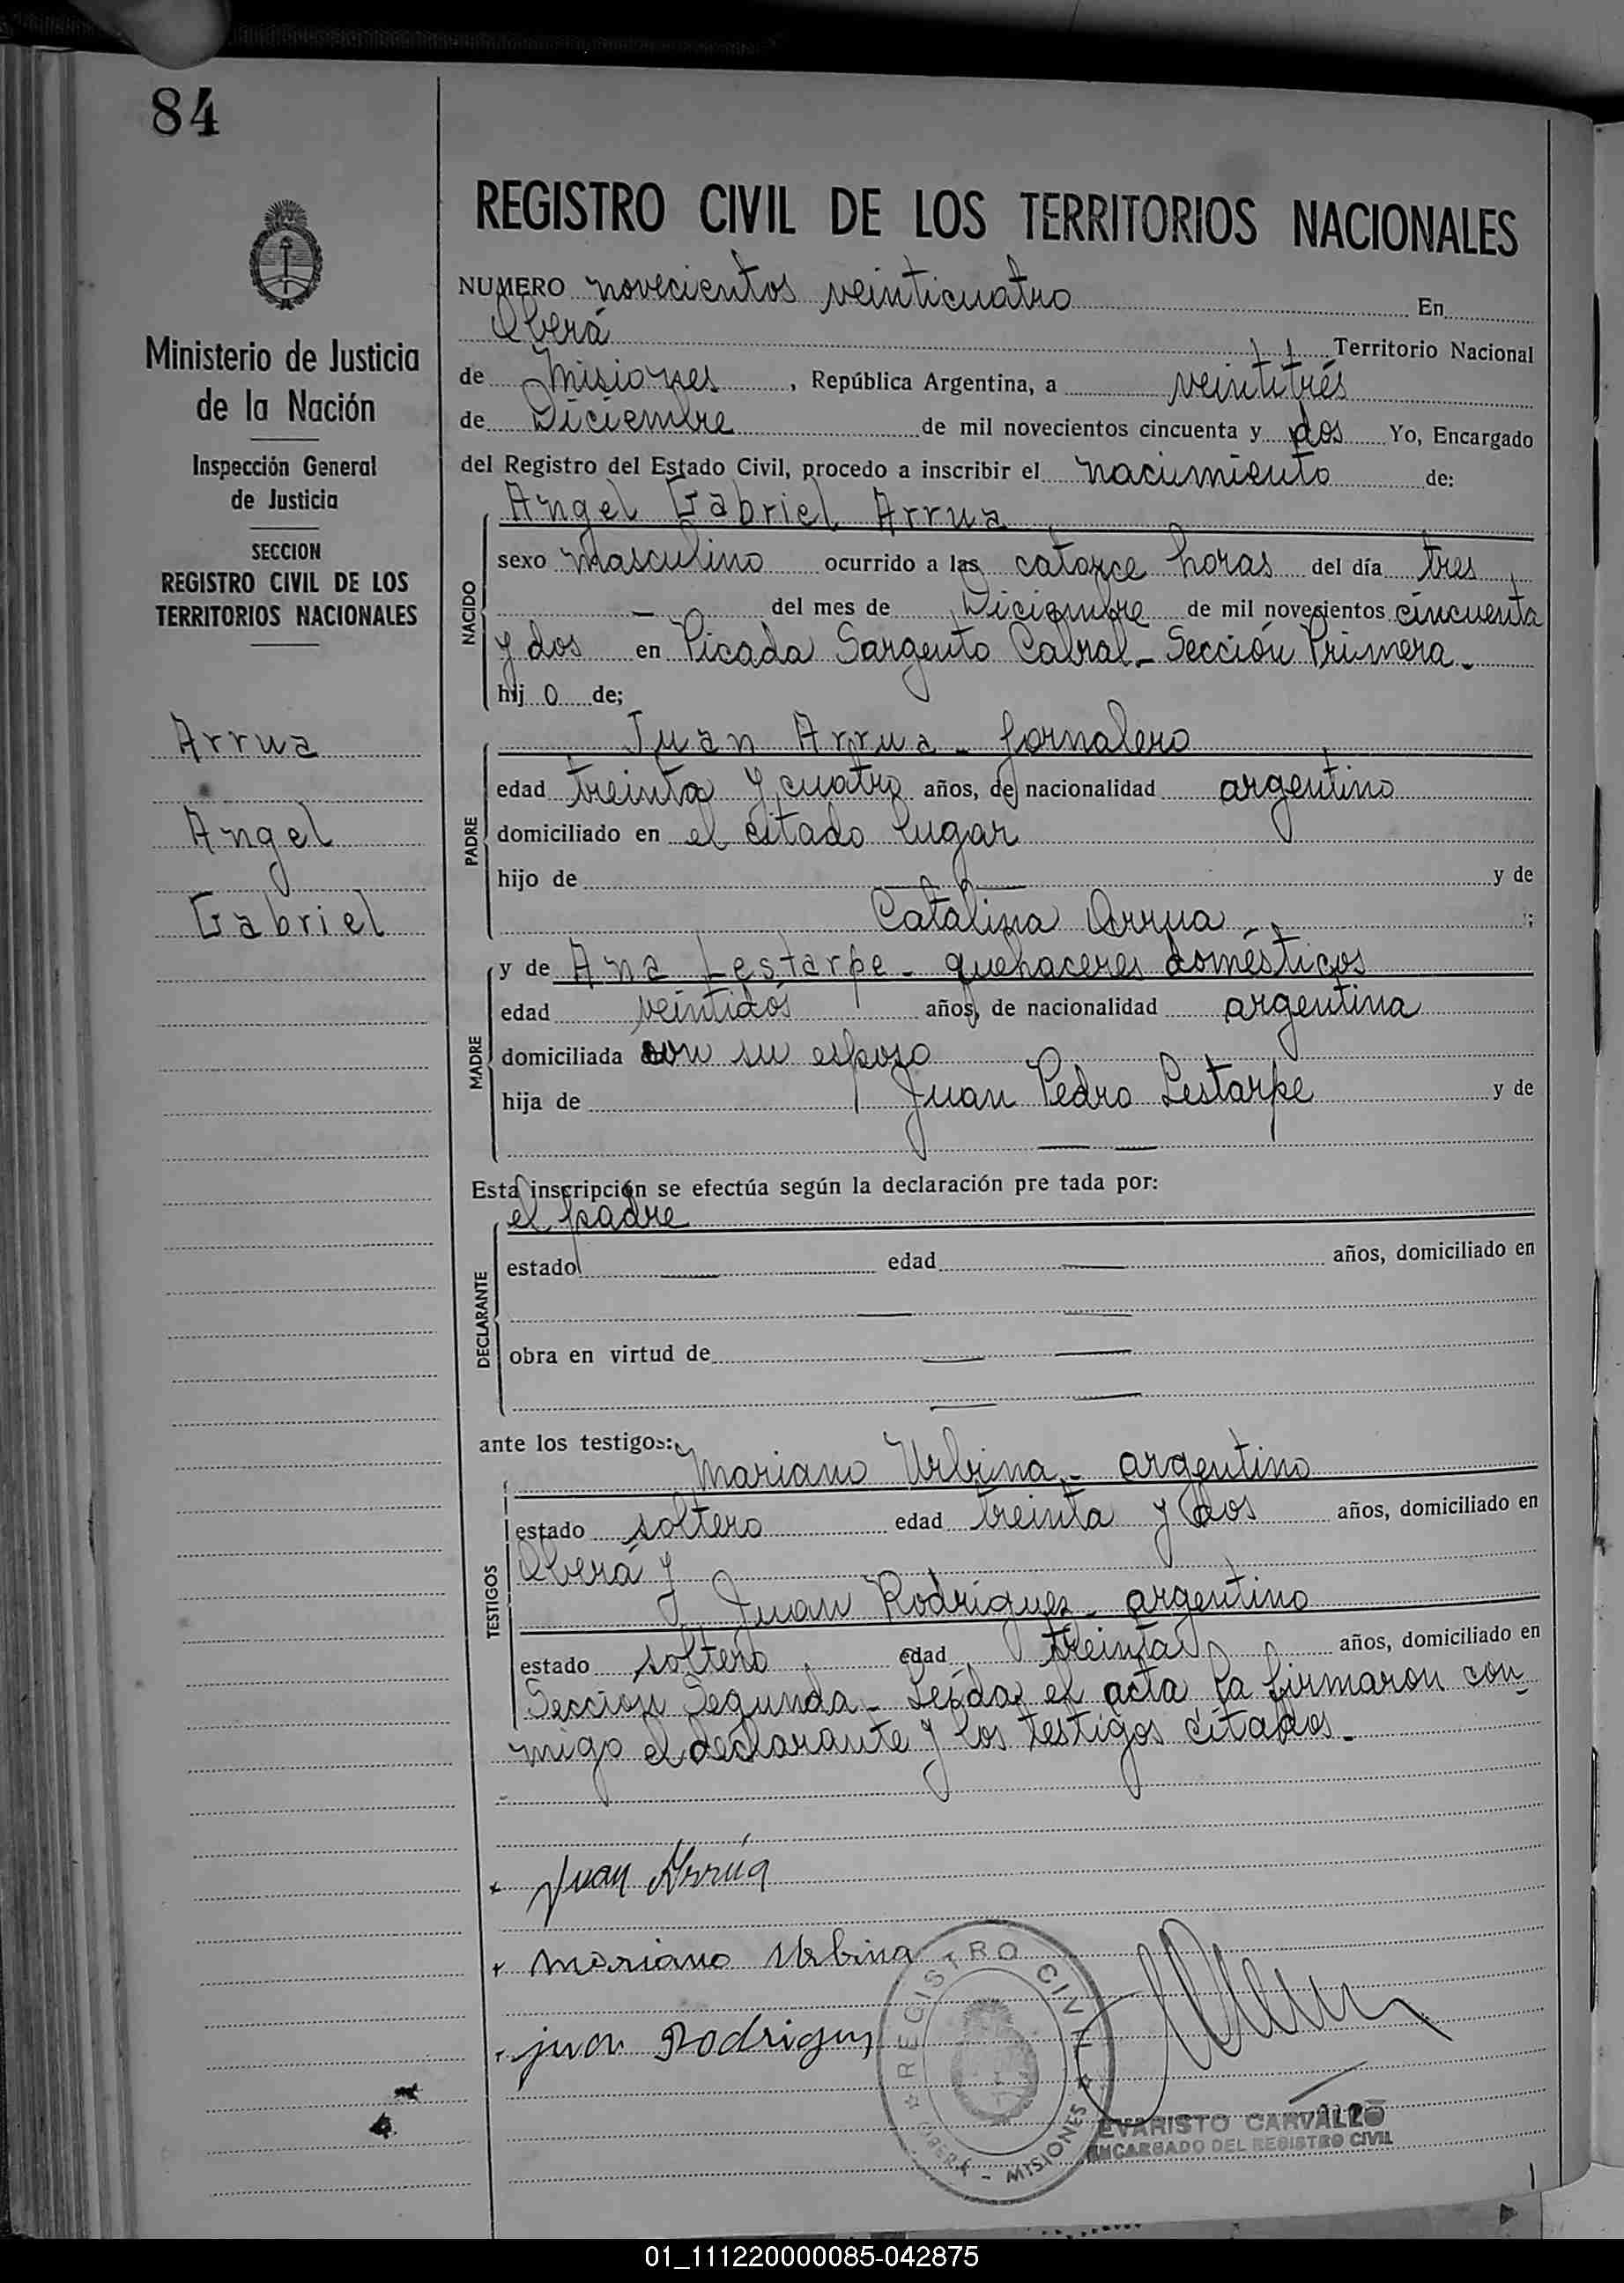 84
REGISTRO CIVIL DE LOS TERRITORIOS NACIONALES
Ministerio de Justicia
de la Nación
Inspección General
de Justicia
SECCION
REGISTRO CIVIL DE LOS
TERRITORIOS NACIONALES
Arrua
Angel
Gabriel
NUMERO novecientos veinticuatro En
Oberá Territorio Nacional
de Misiones, República Argentina, a veintitrés
de Diciembre de mil novecientos cincuenta y dos Yo, Encargado
del Registro del Estado Civil, procedo a inscribir el nacimiento de:
Angel Gabriel Arrua
NACIDO
sexo masculino ocurrido a las catorce horas del día tres
— del mes de Diciembre de mil novecientos cincuenta
y dos en Picada Sargento Cabral - Sección Primera -
hij o de;
PADRE
Juan Arrua - Jornalero
edad treinta y cuatro años, de nacionalidad argentino
domiciliado en el citado lugar
hijo de — — y de
Catalina Arrua ;
MADRE
y de Ana Lestarpe - quehaceres domésticos
edad veintidós años, de nacionalidad argentina
domiciliada con su esposo
hija de Juan Pedro Lestarpe y de
— —
Esta inscripción se efectúa según la declaración pre tada por:
el padre
DECLARANTE
estado — edad — años, domiciliado en
— —
obra en virtud de — —
— —
ante los testigos:
TESTIGOS
Mariano Urbina - argentino
estado soltero edad treinta y dos años, domiciliado en
Oberá y
Juan Rodríguez - argentino
estado soltero edad treinta años, domiciliado en
Sección Segunda - Leída el acta la firmaron con-
migo el declarante y los testigos citados -
Juan Arrúa
Mariano Urbina
juan Rodriguez
REGISTRO CIVIL
OBERÁ - MISIONES
EVARISTO CARVALLO
ENCARGADO DEL REGISTRO CIVIL
01_111220000085-042875